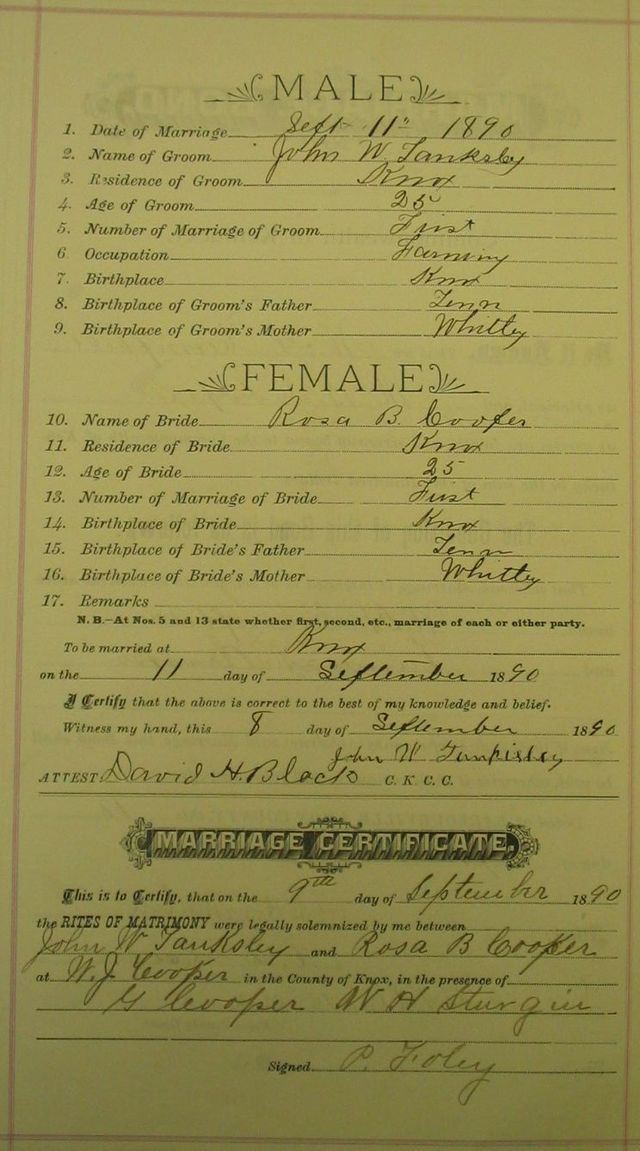 MALE
1. Date of Marriage Sept 11" 1890
2. Name of Groom John W Tanksley
3. Residence of Groom Knox
4. Age of Groom 25
5. Number of Marriage of Groom First
6. Occupation Farming
7. Birthplace Knox
8. Birthplace of Groom's Father Tenn
9. Birthplace of Groom's Mother Whitley
FEMALE
10. Name of Bride Rosa B. Cooper
11. Residence of Bride Knox
12. Age of Bride 25
13. Number of Marriage of Bride First
14. Birthplace of Bride Knox
15. Birthplace of Bride's Father Tenn
16. Birthplace of Bride's Mother Whitley
17. Remarks
N. B.—At Nos. 5 and 13 state whether first, second, etc., marriage of each or either party.
To be married at Knox
on the 11 day of September 1890
I Certify that the above is correct to the best of my knowledge and belief.
Witness my hand, this 8 day of September 1890
John W
ATTEST David H. Black C. K. C. C.
MARRIAGE CERTIFICATE.
This is to Certify, that on the 9th day of September 1890
the RITES OF MATRIMONY were legally solemnized by me between
John W Tanksley and Rosa B Cooper
at W. J. Cooper in the County of Knox, in the presence of
G Cooper W H
Signed P. Foley